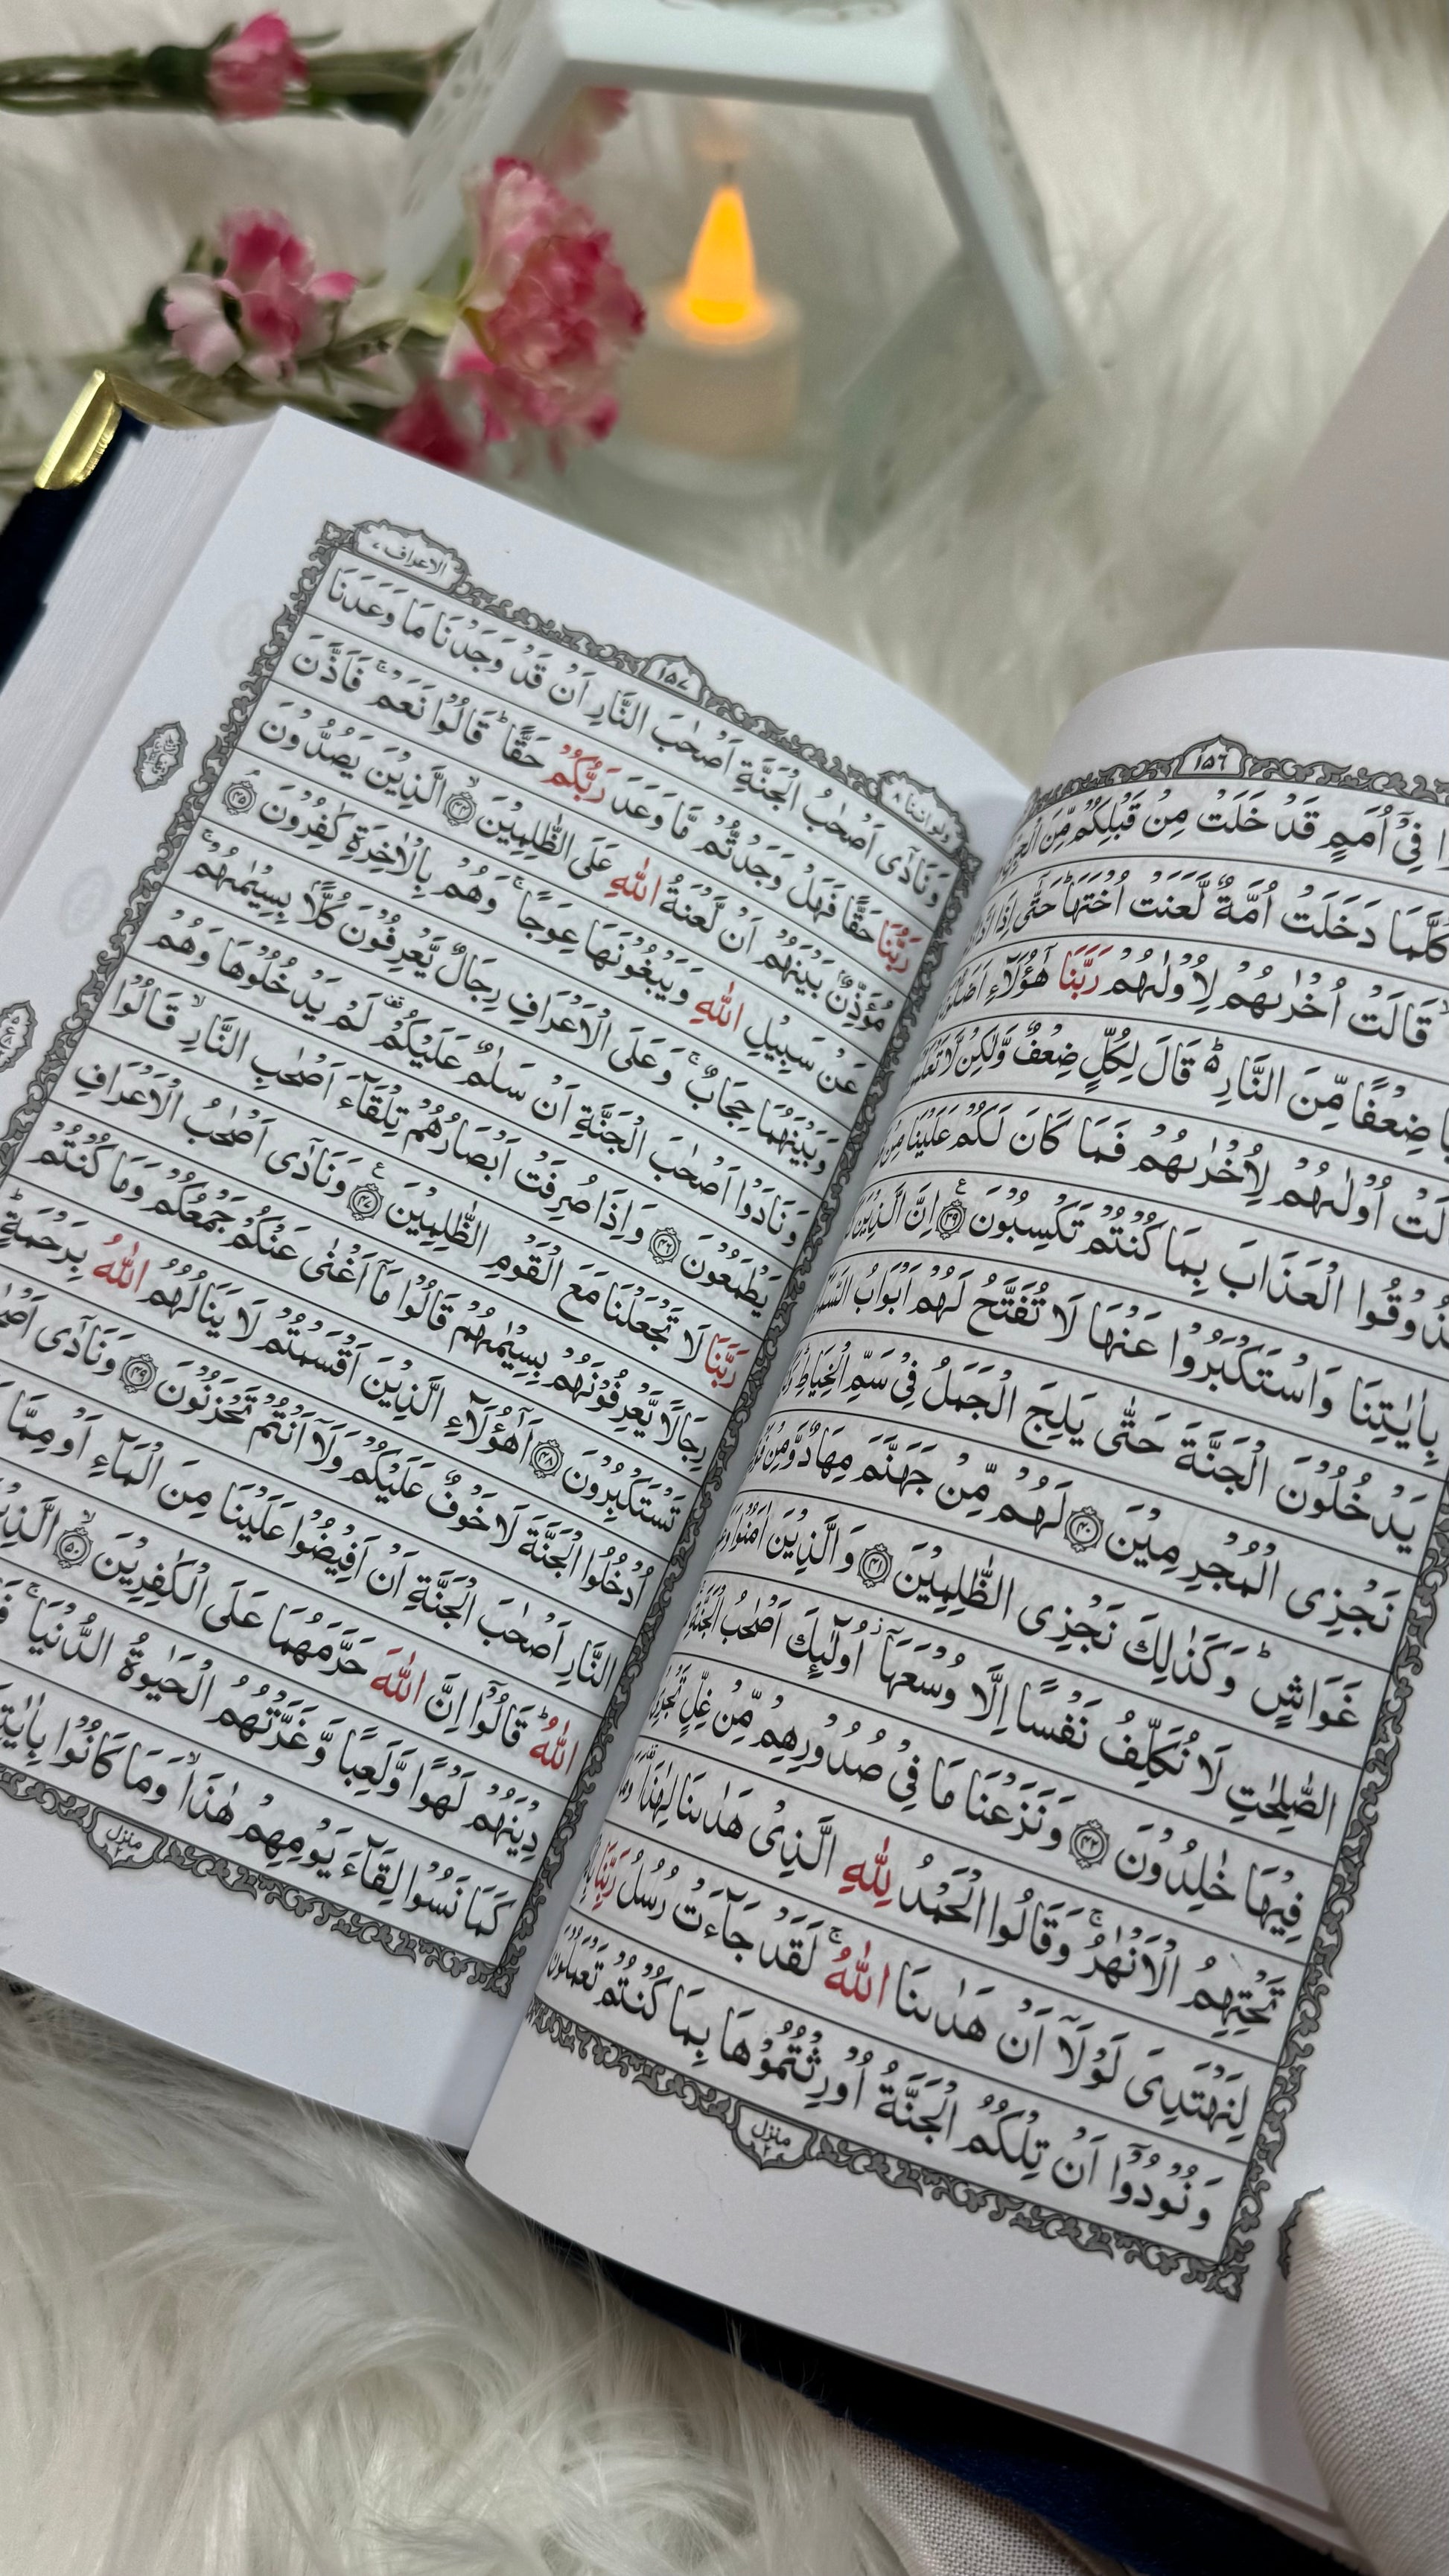 ١٥٦
فِىْٓ اُمَمٍ قَدْ خَلَتْ مِنْ قَبْلِكُمْ مِّنَ
كُلَّمَا دَخَلَتْ اُمَّةٌ لَّعَنَتْ اُخْتَهَاؕ حَتّٰٓى اِذَا
قَالَتْ اُخْرٰىهُمْ لِاُوْلٰىهُمْ رَبَّنَا هٰٓؤُلَآءِ
ضِعْفًا مِّنَ النَّارِ ؕ قَالَ لِكُلٍّ ضِعْفٌ وَّلٰكِنْ لَّا
اُوْلٰىهُمْ لِاُخْرٰىهُمْ فَمَا كَانَ لَكُمْ عَلَيْنَا مِنْ
الْعَذَابَ بِمَا كُنْتُمْ تَكْسِبُوْنَ ۝٣٩ اِنَّ الَّذِيْنَ
بِاٰيٰتِنَا وَاسْتَكْبَرُوْا عَنْهَا لَا تُفَتَّحُ لَهُمْ اَبْوَابُ
يَدْخُلُوْنَ الْجَنَّةَ حَتّٰى يَلِجَ الْجَمَلُ فِىْ سَمِّ الْخِيَاطِؕ
نَجْزِى الْمُجْرِمِيْنَ ۝٤٠ لَهُمْ مِّنْ جَهَنَّمَ مِهَادٌ وَّمِنْ
غَوَاشٍؕ وَكَذٰلِكَ نَجْزِى الظّٰلِمِيْنَ ۝٤١ وَالَّذِيْنَ اٰمَنُوْا
الصّٰلِحٰتِ لَا نُكَلِّفُ نَفْسًا اِلَّا وُسْعَهَاۤ اُولٰٓئِكَ اَصْحٰبُ الْجَنَّةِ
فِيْهَا خٰلِدُوْنَ ۝٤٢ وَنَزَعْنَا مَا فِىْ صُدُوْرِهِمْ مِّنْ غِلٍّ
تَحْتِهِمُ الْاَنْهٰرُۚ وَقَالُوا الْحَمْدُ لِلّٰهِ الَّذِىْ هَدٰىنَا لِهٰذَا
لِنَهْتَدِىَ لَوْلَاۤ اَنْ هَدٰىنَا اللّٰهُۚ لَقَدْ جَآءَتْ رُسُلُ رَبِّنَا
وَنُوْدُوْۤا اَنْ تِلْكُمُ الْجَنَّةُ اُوْرِثْتُمُوْهَا بِمَا كُنْتُمْ تَعْمَلُوْنَ
منزل ٢
ولو اننا ٨
١٥٧
الاعراف ٧
وَنَادٰٓى اَصْحٰبُ الْجَنَّةِ اَصْحٰبَ النَّارِ اَنْ قَدْ وَجَدْنَا مَا وَعَدَنَا
رَبُّنَا حَقًّا فَهَلْ وَجَدْتُّمْ مَّا وَعَدَ رَبُّكُمْ حَقًّاؕ قَالُوْا نَعَمْۚ فَاَذَّنَ
مُؤَذِّنٌۢ بَيْنَهُمْ اَنْ لَّعْنَةُ اللّٰهِ عَلَى الظّٰلِمِيْنَۙ ۝٤٤ الَّذِيْنَ يَصُدُّوْنَ
عَنْ سَبِيْلِ اللّٰهِ وَيَبْغُوْنَهَا عِوَجًاۚ وَهُمْ بِالْاٰخِرَةِ كٰفِرُوْنَۘ ۝٤٥
وَبَيْنَهُمَا حِجَابٌۚ وَعَلَى الْاَعْرَافِ رِجَالٌ يَّعْرِفُوْنَ كُلًّاۢ بِسِيْمٰىهُمْۚ
وَنَادَوْا اَصْحٰبَ الْجَنَّةِ اَنْ سَلٰمٌ عَلَيْكُمْ لَمْ يَدْخُلُوْهَا وَهُمْ
يَطْمَعُوْنَ ۝٤٦ وَاِذَا صُرِفَتْ اَبْصَارُهُمْ تِلْقَآءَ اَصْحٰبِ النَّارِۙ قَالُوْا
رَبَّنَا لَا تَجْعَلْنَا مَعَ الْقَوْمِ الظّٰلِمِيْنَ ۝٤٧ وَنَادٰٓى اَصْحٰبُ الْاَعْرَافِ
رِجَالًا يَّعْرِفُوْنَهُمْ بِسِيْمٰىهُمْ قَالُوْا مَاۤ اَغْنٰى عَنْكُمْ جَمْعُكُمْ وَمَا كُنْتُمْ
تَسْتَكْبِرُوْنَ ۝٤٨ اَهٰٓؤُلَآءِ الَّذِيْنَ اَقْسَمْتُمْ لَا يَنَالُهُمُ اللّٰهُ بِرَحْمَةٍؕ
اُدْخُلُوا الْجَنَّةَ لَا خَوْفٌ عَلَيْكُمْ وَلَاۤ اَنْتُمْ تَحْزَنُوْنَ ۝٤٩ وَنَادٰٓى
النَّارِ اَصْحٰبَ الْجَنَّةِ اَنْ اَفِيْضُوْا عَلَيْنَا مِنَ الْمَآءِ اَوْ مِمَّا
اللّٰهُؕ قَالُوْۤا اِنَّ اللّٰهَ حَرَّمَهُمَا عَلَى الْكٰفِرِيْنَۙ ۝٥٠ الَّذِيْنَ
دِيْنَهُمْ لَهْوًا وَّلَعِبًا وَّغَرَّتْهُمُ الْحَيٰوةُ الدُّنْيَاۚ
كَمَا نَسُوْا لِقَآءَ يَوْمِهِمْ هٰذَاۙ وَمَا كَانُوْا بِاٰيٰتِنَا
منزل ٢